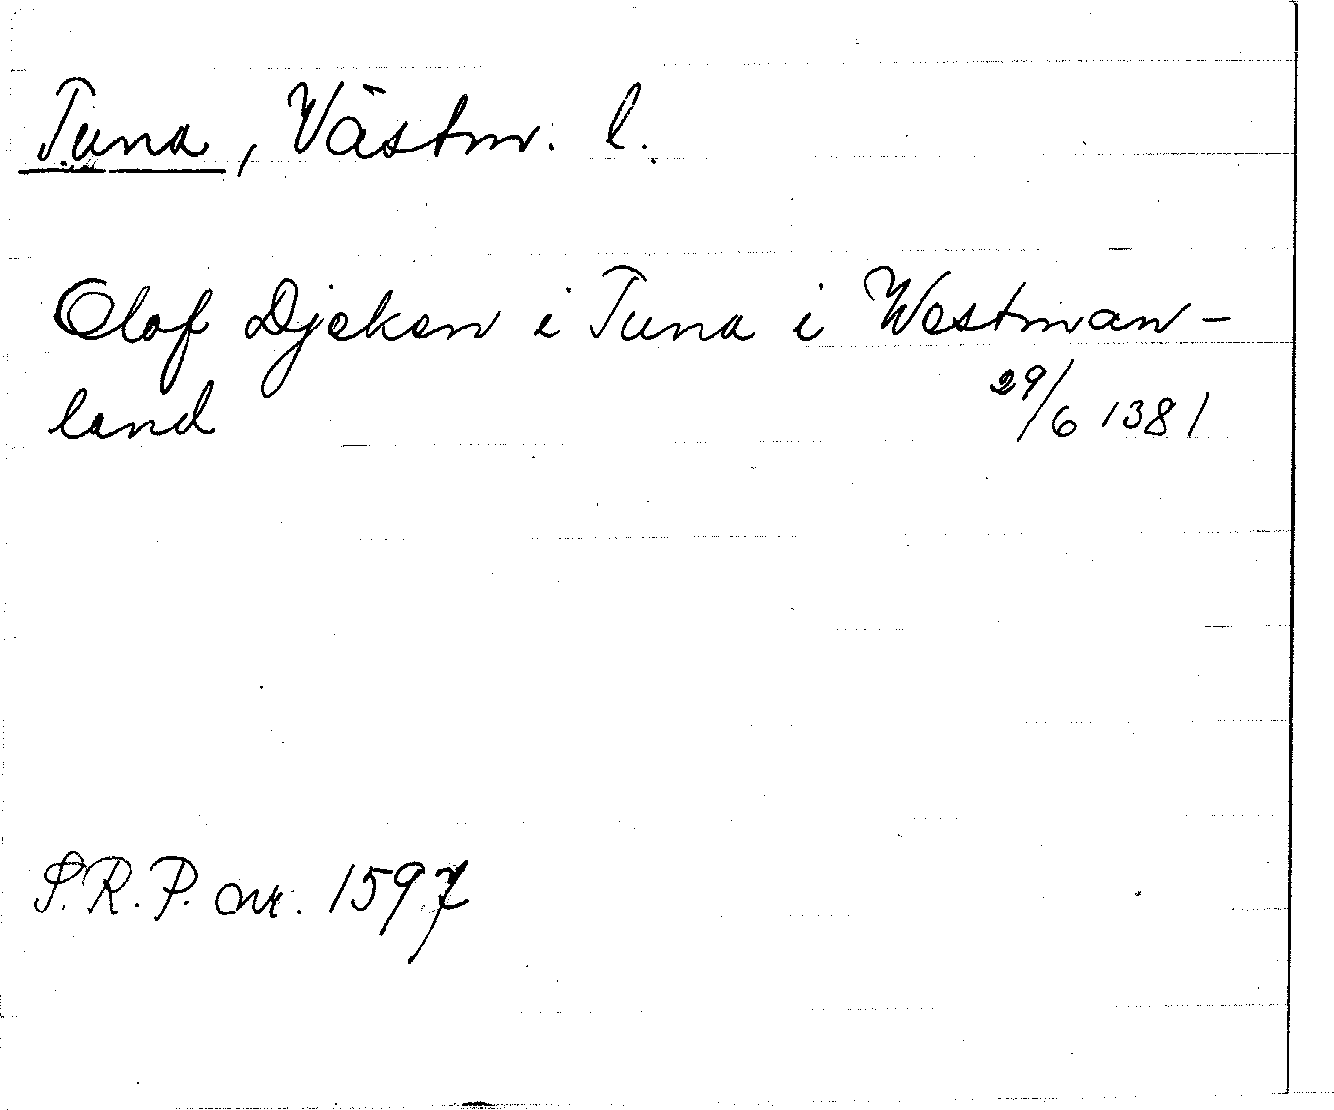 Tuna, Västm. l.
Olof Djeken i Tuna i Westman-
land 29/6 1381
S.R.P. nr. 1597